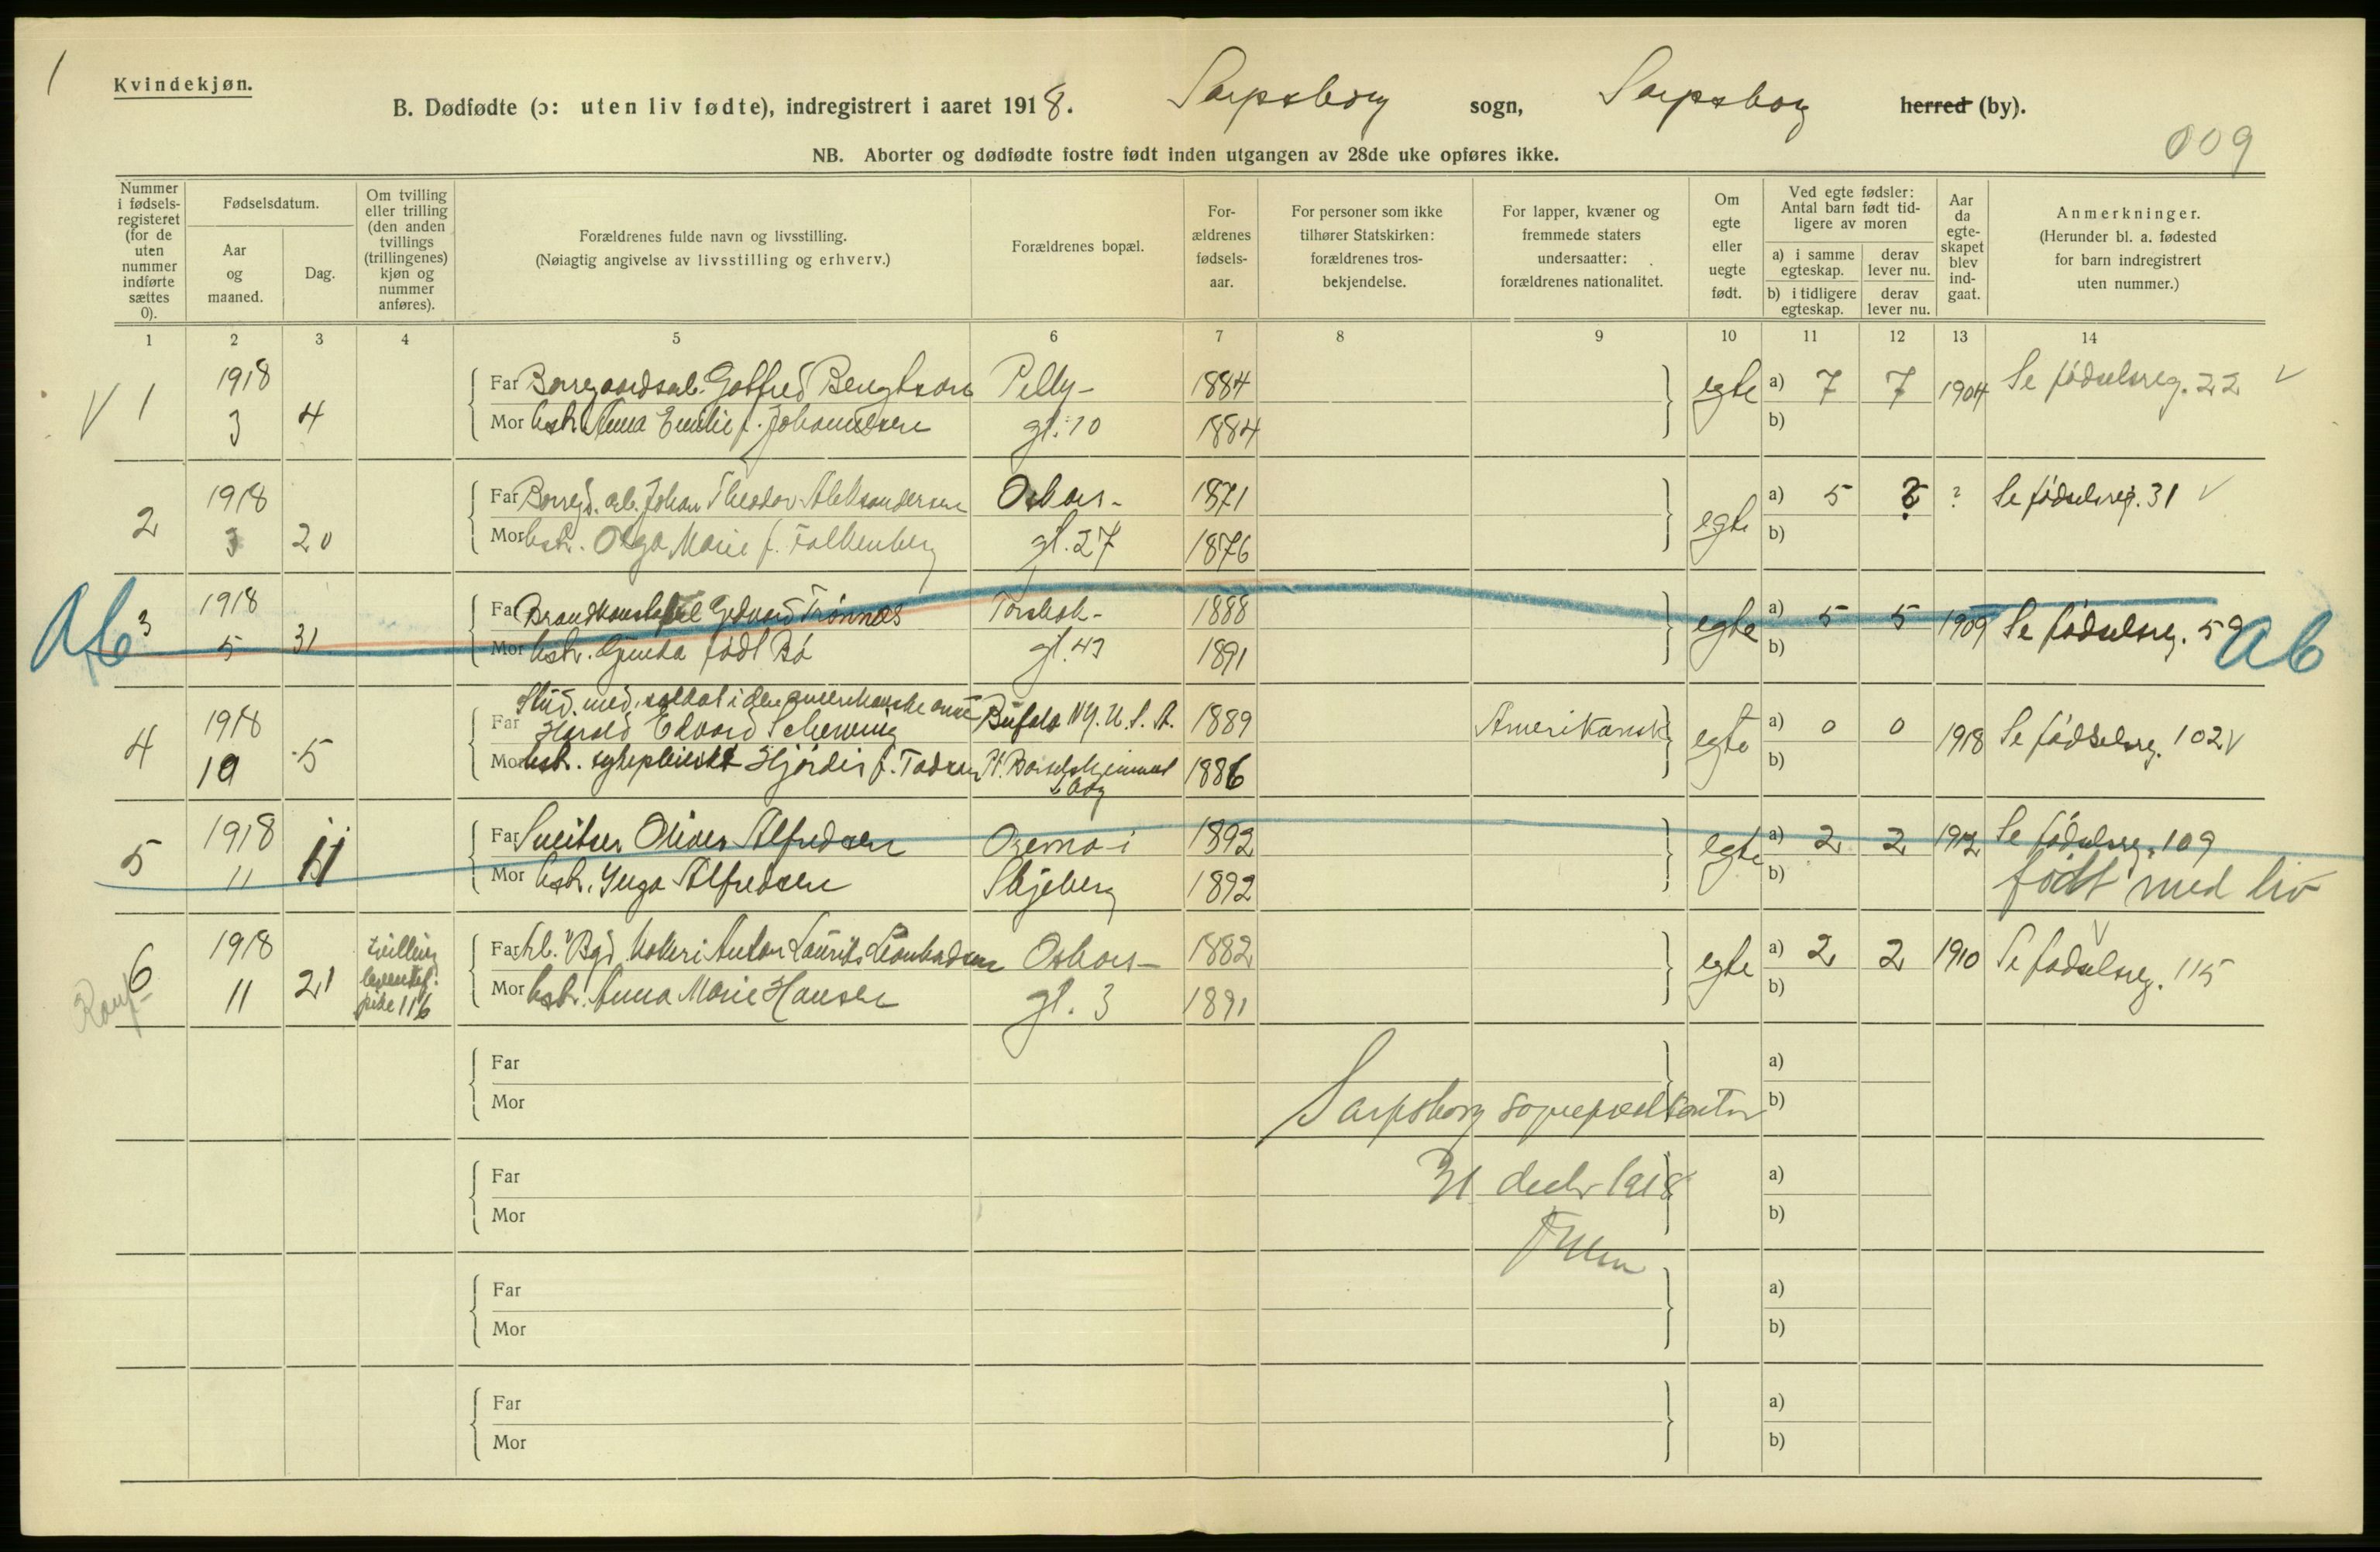 1
Kvindekjøn.
B. Dødfødte (ɔ: uten liv fødte), indregistrert i aaret 1918. Sarpsborg sogn, Sarpsborg herred (by).
009
NB. Aborter og dødfødte fostre født inden utgangen av 28de uke opføres ikke.
Nummer i fødselsregisteret (for de uten nummer indførte sættes 0).
Fødselsdatum.
Aar og maaned.
Dag.
Om tvilling eller trilling (den anden tvillings (trillingenes) kjøn og nummer anføres).
Forældrenes fulde navn og livsstilling.
(Nøiagtig angivelse av livsstilling og erhverv.)
Forældrenes bopæl.
For-ældrenes fødsels-aar.
For personer som ikke tilhører Statskirken: forældrenes tros-bekjendelse.
For lapper, kvæner og fremmede staters undersaatter: forældrenes nationalitet.
Om egte eller uegte født.
Ved egte fødsler: Antal barn født tid-ligere av moren
a) i samme egteskap. derav lever nu.
b) i tidligere egteskap. derav lever nu.
Aar da egte-skapet blev ind-gaat.
Anmerkninger.
(Herunder bl. a. fødested for barn indregistrert uten nummer.)
1 2 3 4 5 6 7 8 9 10 11 12 13 14
V 1 1918 Far Borregaardsarb. Gotfred Bengtson Pelly- 1884 egte a) 7 7 1904 Se fødselsreg. 22 V
3 4 Mor hstr. Anna Emilie f. Johannesen gt. 10 1884 b)
2 1918 Far Borregd. arb. Johan Theodor Aleksandersen Oskars- 1871 egte a) 5 ? ? Se fødselsreg. 31 V
3 20 Mor hstr. Olga Marie f. Falkenberg gt. 27 1876 b)
Ab 3 1918 Far Brandkonstabel Edvard Trønnes Torsbek- 1888 egte a) 5 5 1909 Se fødselsreg. 59 Ab
5 31 Mor hstr. Gunda født Bø gt. 43 1891 b)
Stud. med. soldat i den amerikanske armé
4 1918 Far Harald Edvard Schervenig Bufalo N Y. U. S. A. 1889 Amerikansk egte a) 0 0 1918 Se fødselsreg. 102 V
10 5 Mor hstr. sykepleierske Hjørdis f. 1886 b)
5 1918 11 Far Sveitser Oliver Alfredsen Opsmo i 1892 egte a) 2 2 1912 Se fødselsreg. 109
11 Mor hstr. Inga Alfredsen Skjeberg 1892 b) født med liv
6 1918 tvilling levendef. pike 116 Far Arb. v Bgd. Anton Laurits Oskars- 1882 egte a) 2 2 1910 Se fødselsreg. 115
11 21 Mor hstr. Anna Marie Hansen gt. 3 1891 b)
Far a)
Mor b)
Sarpsborg sogneprestkontor
Far a)
31 decbr 1918
Mor b)
Far a)
Mor b)
Far a)
Mor b)